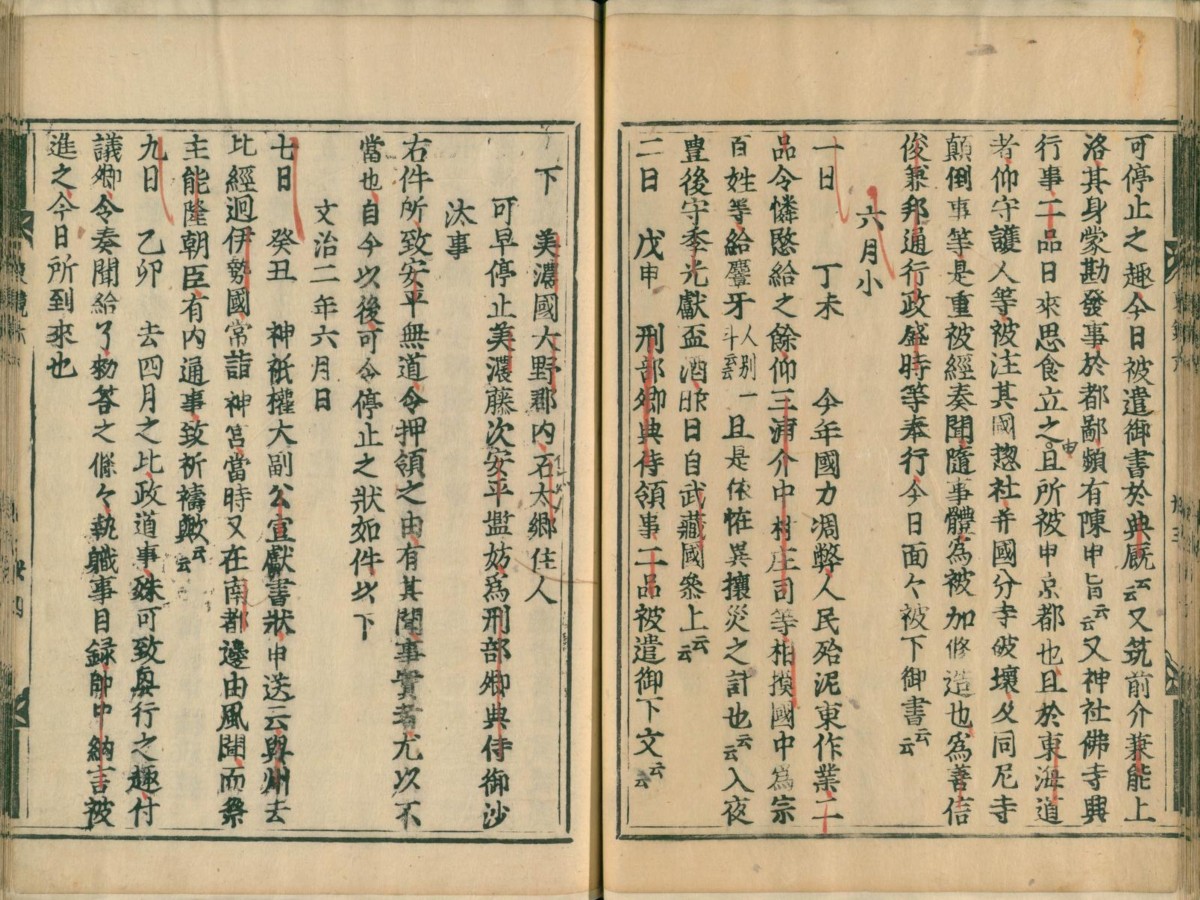 可停止之趣今日被遣御書於典厩云云又筑前介兼能上
洛其身蒙勘發事於都鄙頻有陳申旨云云又神社佛寺興
行事二品日來思食立之且所被申京都也且於東海道
者仰守護人等被注其國惣社并國分寺破壞及同尼寺
顛倒事等是重被經奏聞隨事體為被加修造也為善信
俊兼邦通行政盛時等奉行今日面々被下御書云云
六月小
一日 丁未 今年國力凋弊人民殆泥東作業二
品令憐愍給之餘仰三浦介中村庄司等相摸國中為宗
百姓等給麞牙人別一斗云云且是依恠異攘災之計也云云入夜
豊後守季光獻盃酒昨日自武藏國參上云云
二日 戊申 刑部卿典侍領事二品被遣御下文云云
下 美濃國大野郡内石太郷住人
可早停止美濃藤次安平濫妨為刑部卿典侍御沙
汰事
右件所致安平無道令押領之由有其聞事實者尤以不
當也自今以後可令停止之狀如件以下
文治二年六月日
七日 癸丑 神祇權大副公宣獻書狀申送云與州去
比經迴伊勢國常詣神宮當時又在南都邊由風聞而祭
主能隆朝臣有内通事致祈禱歟云云
九日 乙卯 去四月之比政道事殊可致與行之趣付
議卿令奏聞給了勅答之條々執職事目録帥中納言被
進之今日所到來也